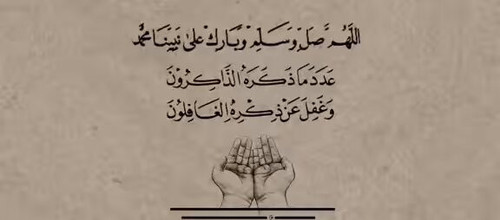 اللَّهُمَّ صَلِّ وَسَلِّمْ وَبَارِكْ عَلَىٰ نَبِيِّنَا مُحَمَّد
عَدَدَ مَا ذَكَرَهُ الذَّاكِرُونَ
وَغَفِلَ عَنْ ذِكْرِهِ الغَافِلُونَ